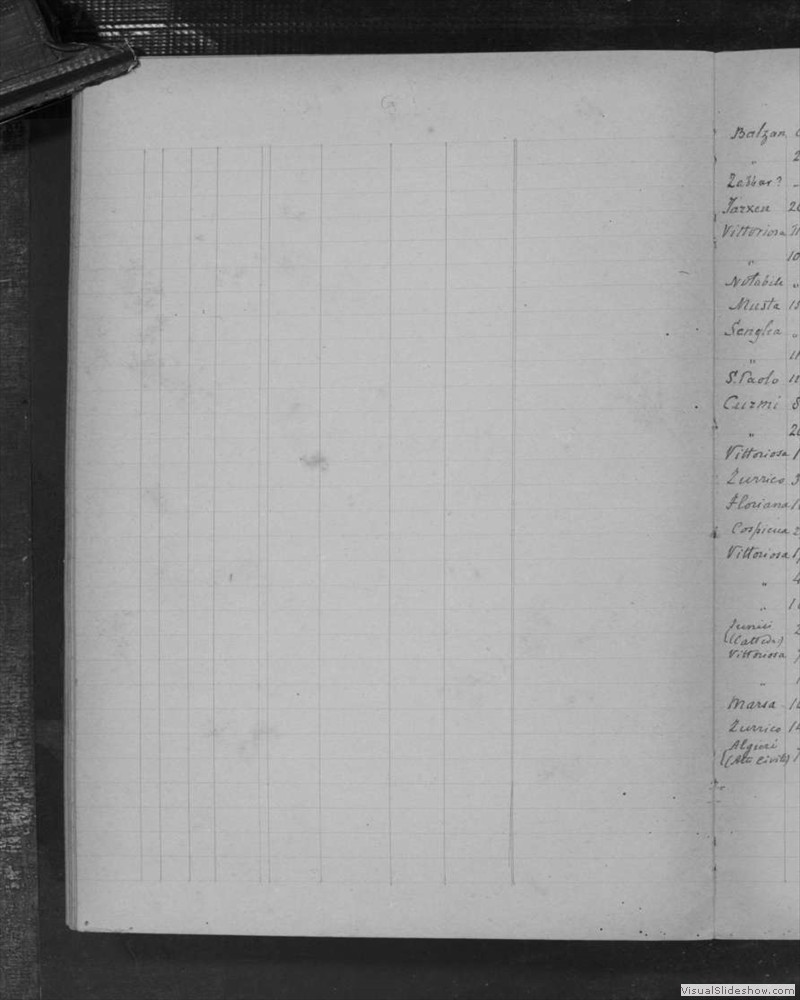 Balzan
"
Zabbar?
Tarxen 20
Vittoriosa 11
" 10
Notabile "
Musta 15
Senglea "
" 11
S. Paolo
Curmi 8
" 20
Vittoriosa
Zurrico 3
Floriana
Cospicua 2
Vittoriosa
" 4
" 1
Tunisi 2
(Catted.)
Vittoriosa
" 1
Marsa
Zurrico 14
Algieri
(Atti Civili)
VisualSlideshow.com